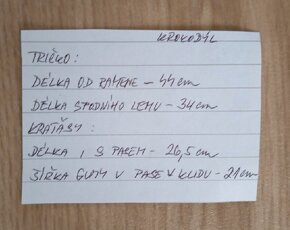 KROKODÝL
TRIČKO:
DÉLKA OD RAMENE – 44 cm
DÉLKA SPODNÍHO LEMU – 34 cm
KRAŤASY:
DÉLKA I S PASEM – 26,5 cm
ŠÍŘKA GUMY V PASE V KLIDU – 21 cm